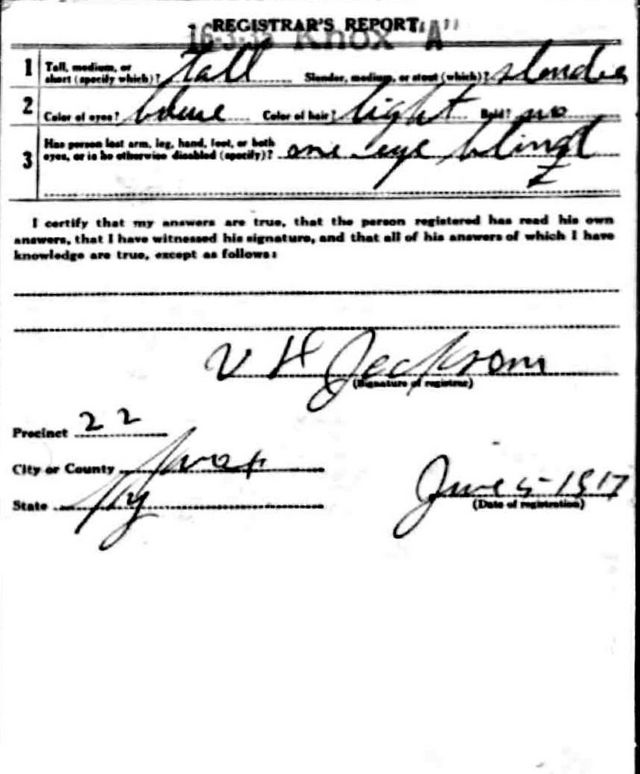 REGISTRAR'S REPORT "A"
Knox
1 Tall, medium, or short (specify which)? tall Slender, medium, or stout (which)? slender
2 Color of eyes? blue Color of hair? light Bald? no
3 Has person lost arm, leg, hand, foot, or both
eyes, or is he otherwise disabled (specify)? one eye blind
I certify that my answers are true, that the person registered has read his own
answers, that I have witnessed his signature, and that all of his answers of which I have
knowledge are true, except as follows:
V H Jackson
(Signature of registrar)
Precinct 22
City or County Knox
State Ky
June 5-1917
(Date of registration)